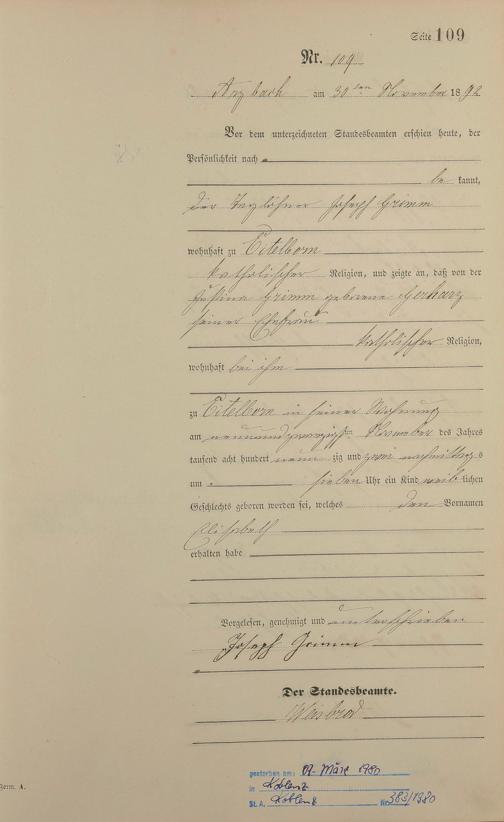 Seite 109
Nr. 109
Arzbach am 30ten November 1892
Vor dem unterzeichneten Standesbeamten erschien heute, der
Persönlichkeit nach
be kannt,
der Taglöhner Joseph Grimm
wohnhaft zu Eitelborn
katholischer Religion, und zeigte an, daß von der
Justina Grimm geborene Gerharz
seiner Ehefrau
katholischer Religion,
wohnhaft bei ihm
zu Eitelborn in seiner Wohnung
am neunundzwanzigsten November des Jahres
tausend acht hundert neunzig und zwei nachmittags
um sieben Uhr ein Kind weiblichen
Geschlechts geboren worden sei, welches den Vornamen
Elisabeth
erhalten habe
Vorgelesen, genehmigt und unterschrieben
Joseph Grimm
Der Standesbeamte.
Weisbrod
gestorben am: 07. März 1980
in Koblenz
St. A. Koblenz Nr. 383/1980
Form. A.